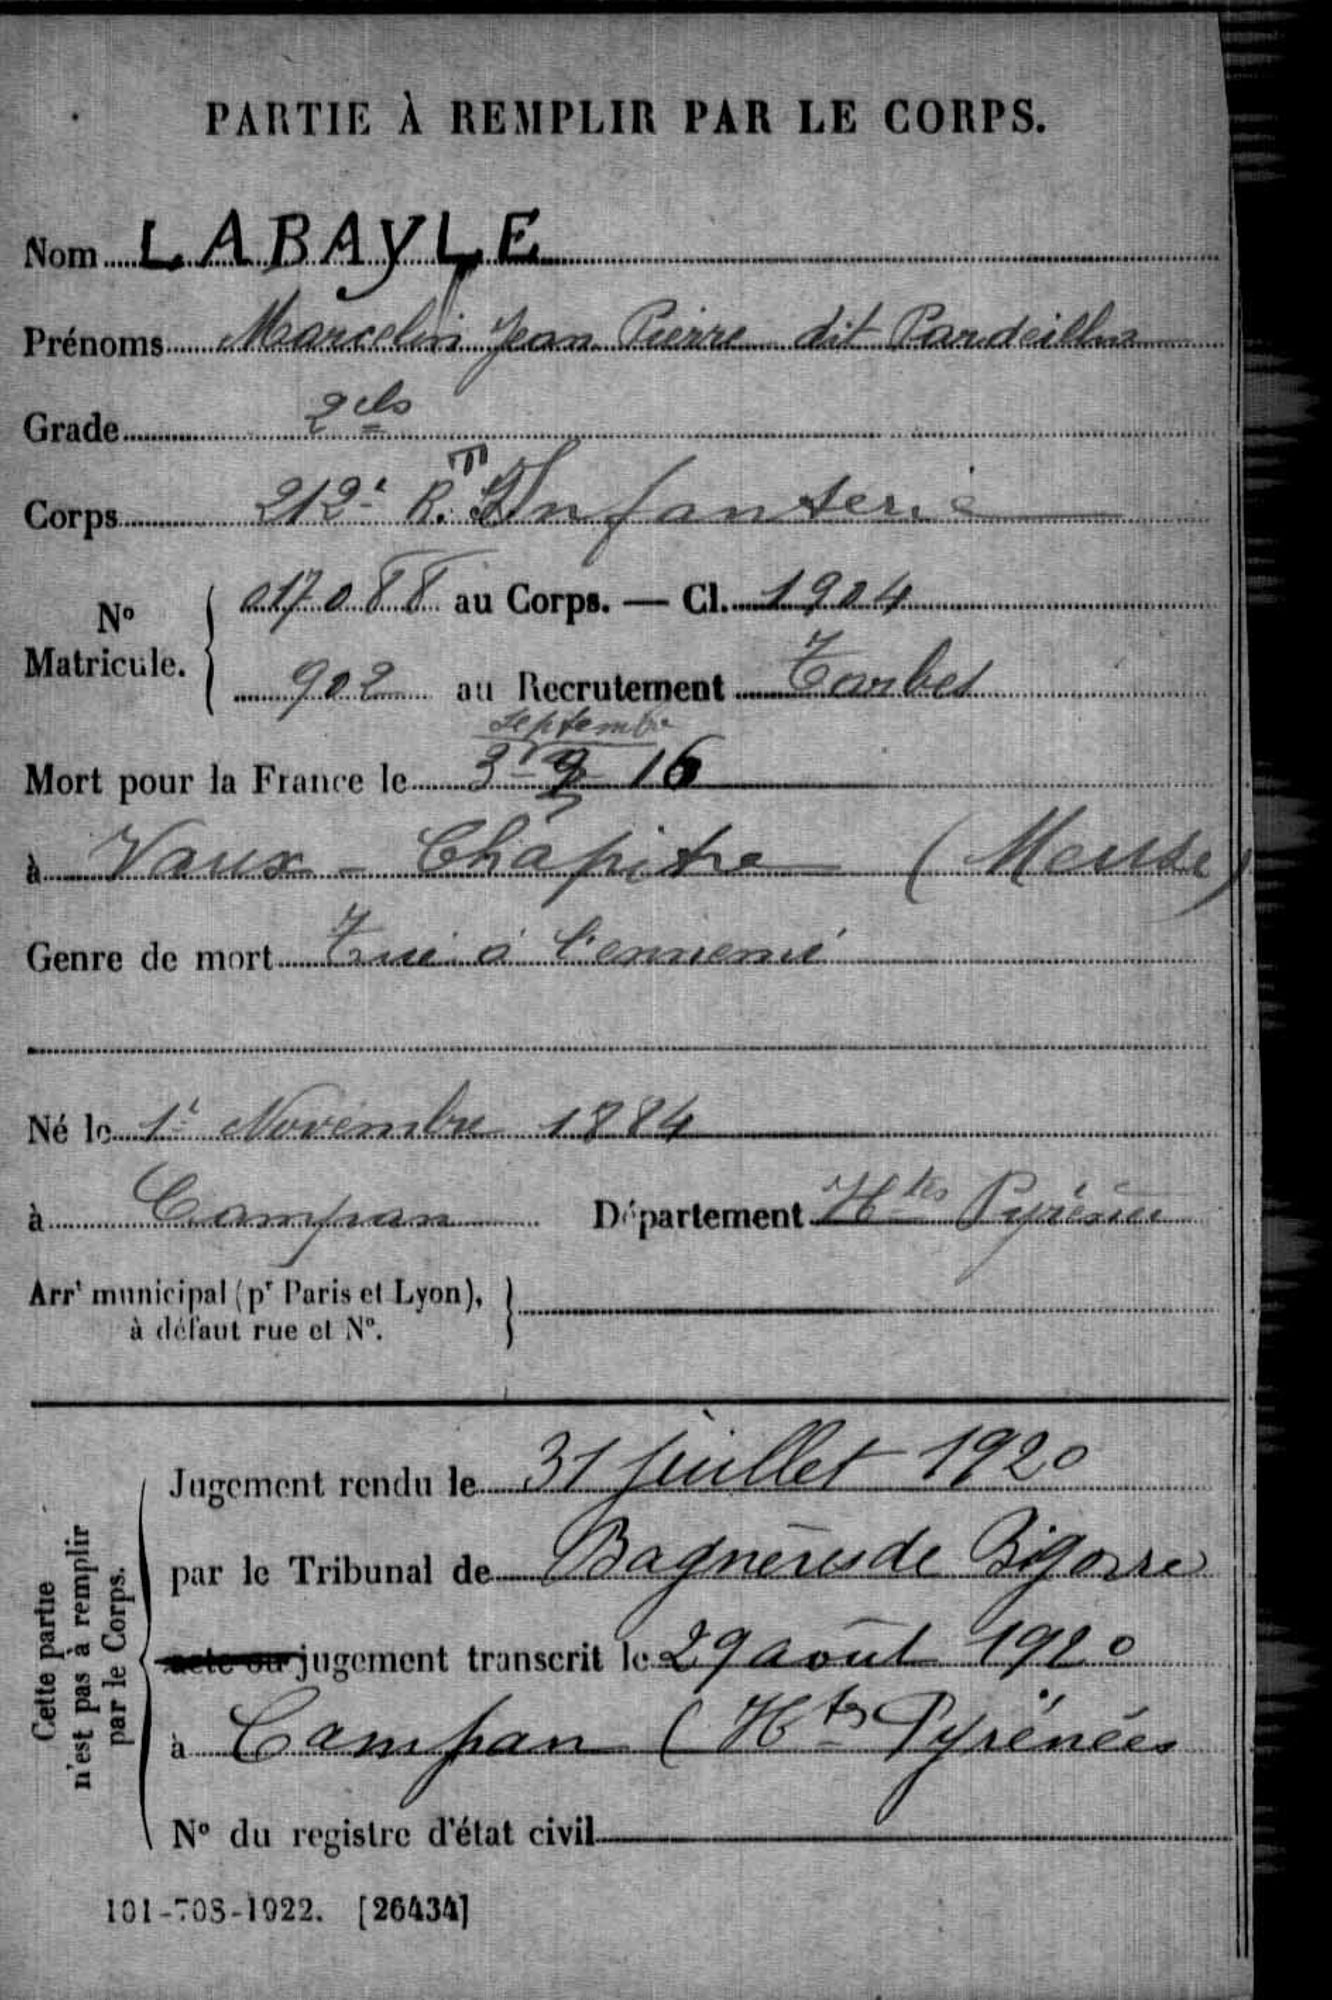 PARTIE À REMPLIR PAR LE CORPS.
Nom LABAYLE
Prénoms Marcelin Jean Pierre dit
Grade 2 cls
Corps 212e R.T d'Infanterie
No Matricule. 017088 au Corps. — Cl. 1904
902 au Recrutement Tarbes
septembre
Mort pour la France le 3 - 9 - 16
à Vaux - Chapitre (Meuse)
Genre de mort Tué à l'ennemi
Né le 1er Novembre 1884
à Campan Département Htes Pyrénées
Arrt municipal (pr Paris et Lyon),
à défaut rue et No.
Cette partie
n'est pas à remplir
par le Corps.
Jugement rendu le 31 juillet 1920
par le Tribunal de Bagnères de Bigorre
acte ou jugement transcrit le 29 août 1920
à Campan (Htes Pyrénées
No du registre d'état civil
101-708-1922. [26434]